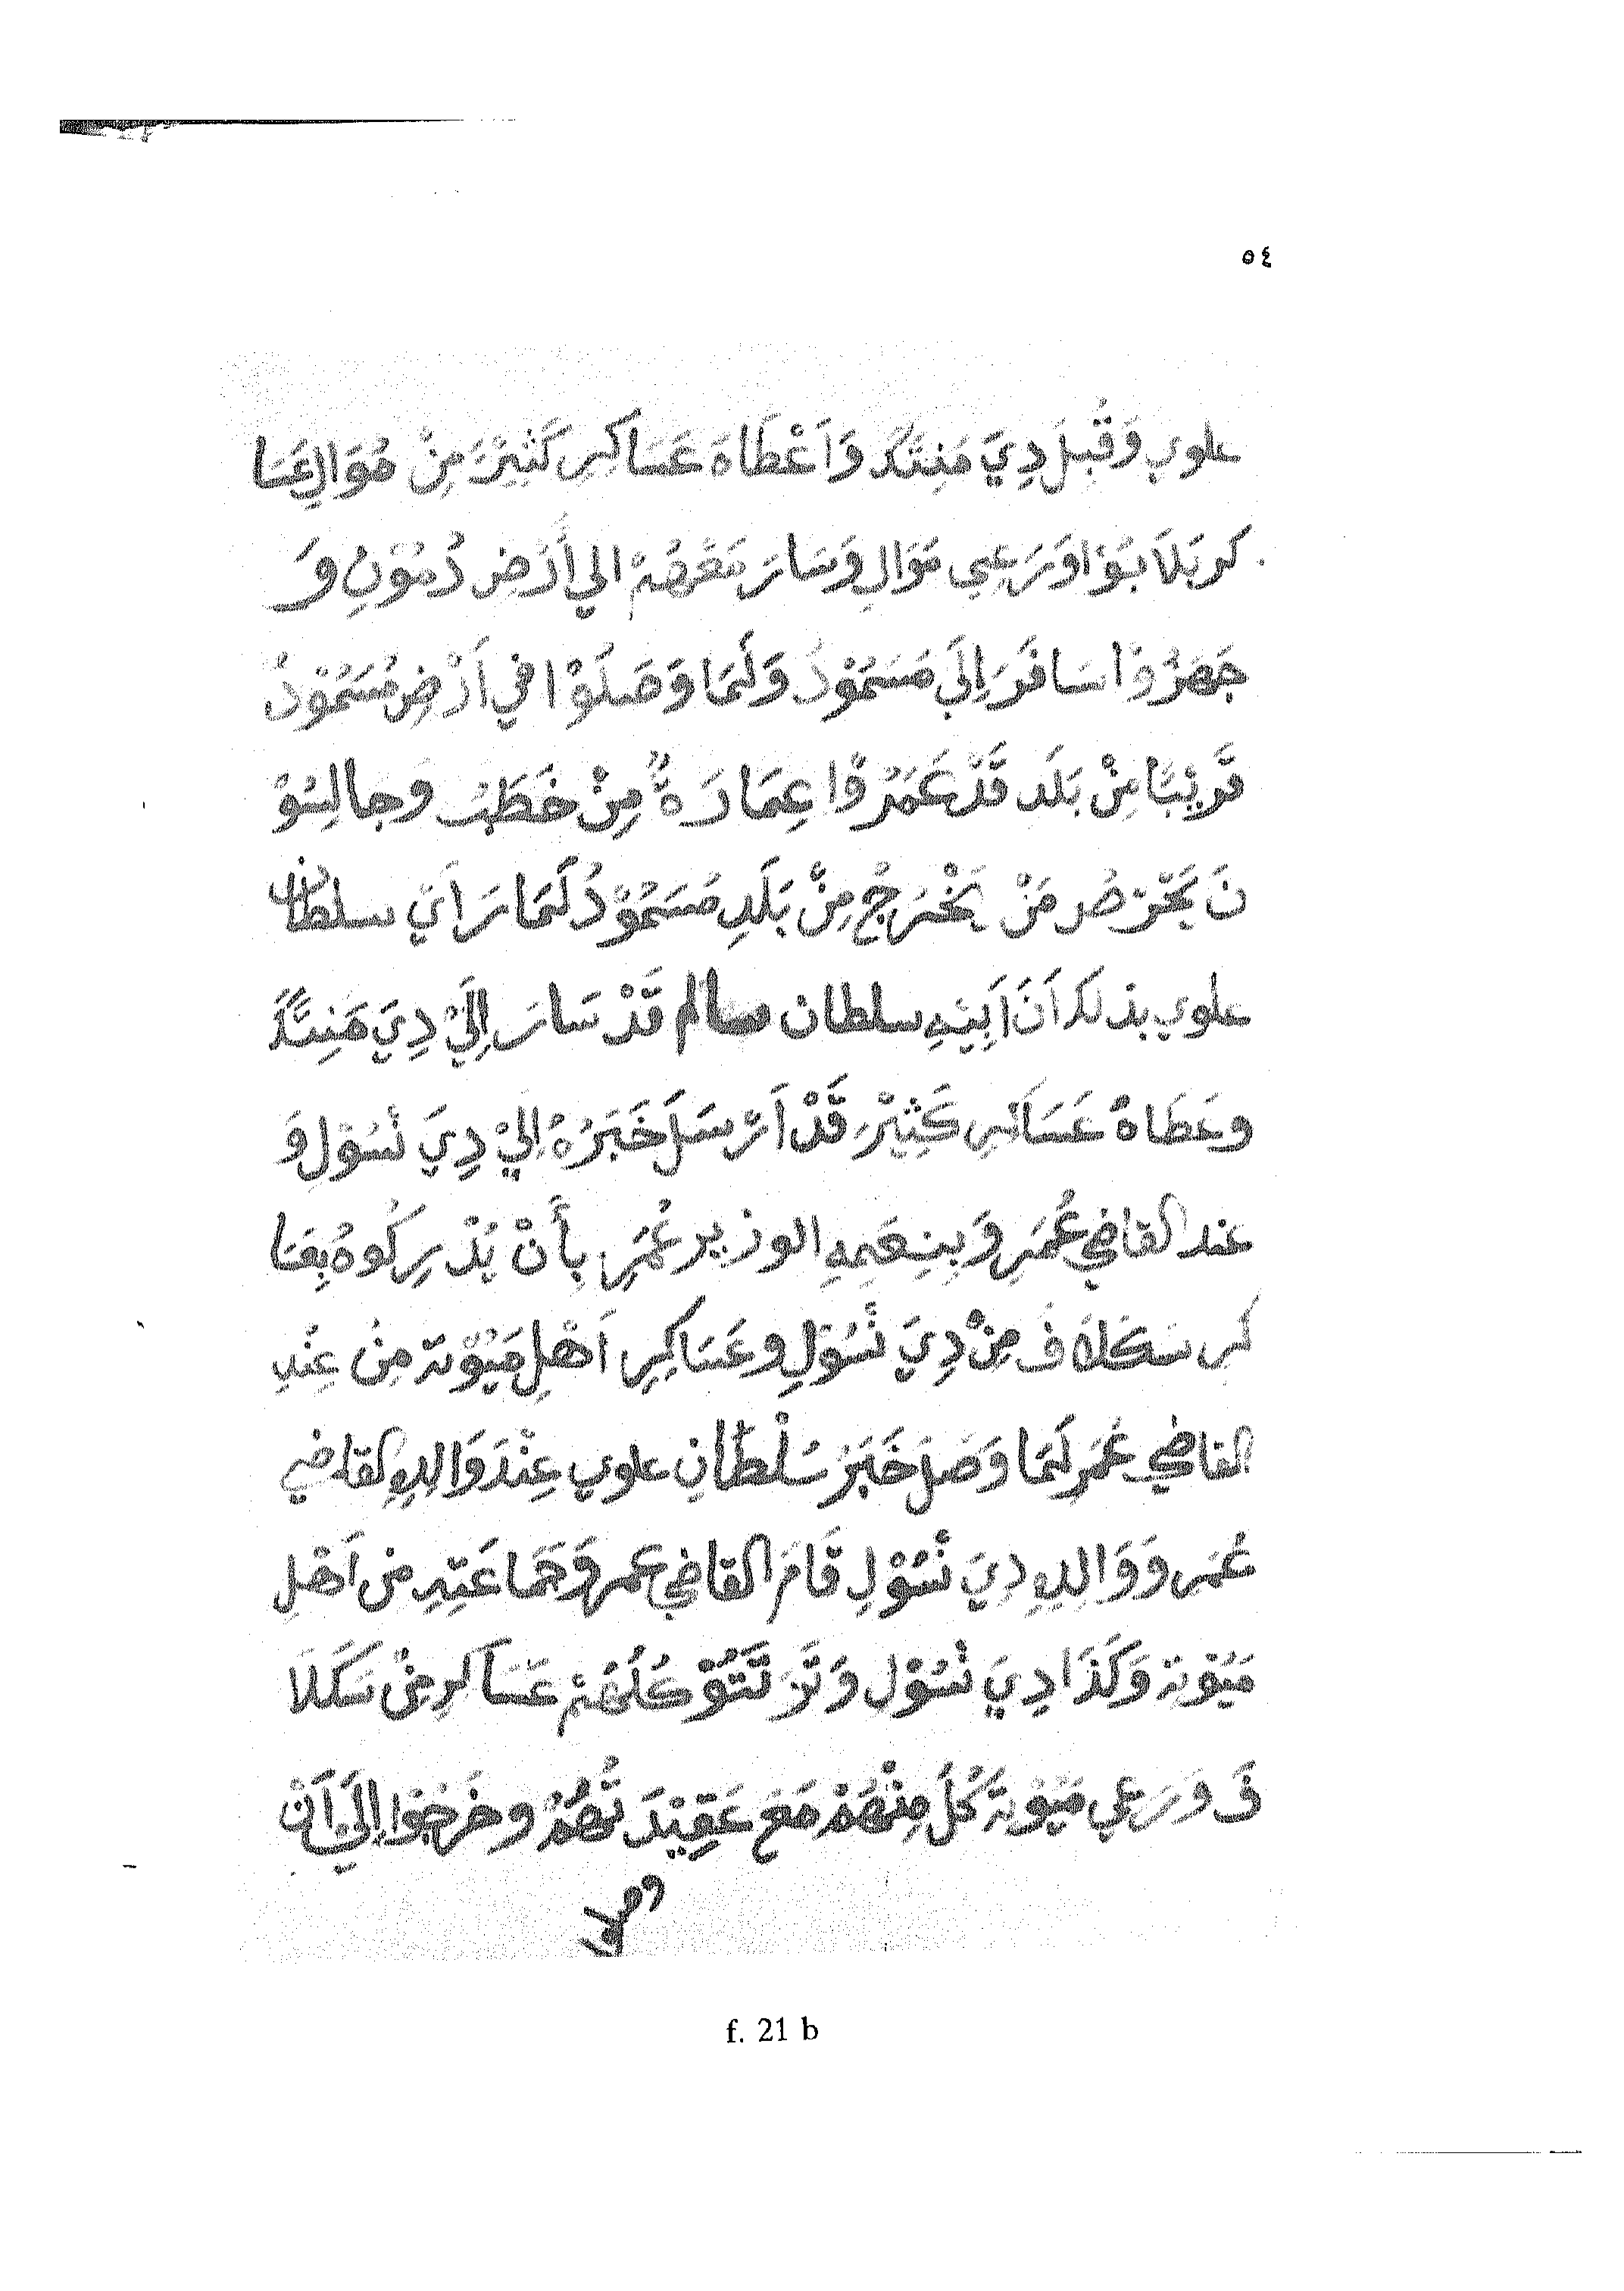 ٥٤
علوي وَقُبِلَ دِيَ مَنِتَكَ وَاَعْطَاهَ عَسَاكِرِ كَثِيْرَ مِنْ هُوَالِ عَسَا
كر بَلَابُوْا وَرَعِي مَوَالِ وَسَارَ مَعْهُمْ الي أَرْضِ دُمُوْنِ وَ
جَهَزُوْا سَافَرَ اِلَي مَسَمُوْدُ وَلَمَا وَصَلُوْا في اَرْضِ مُسَمُوْدُ
قَرِيْبًا مِنْ بَلَد قَدْ عَمَرُوْا عِمَارَةٌ مِنْ خَطَبْ وَجالِسُوْ
نَ يَحْرَصُ مَنْ يَخْرُجُ مِنْ بَلَدِ مَسَمُوْدُ لَمَا رَاَيَ سلطان
علوي بذلك اَنَ اَبِيْهِ سلطان سالم قَدْ سَارَ اِلَيْ دِيَ مَنِتَكَ
وعَطَاهُ عَسَاكِرِ كَثِيْرَ قَدْ اَرْسَلَ خَبَرُهُ اِلَيْ دِيَ نْسُوْلِ وَ
عند القاضي عُمَرِ وَبِنِعَمِهِ الوزير عُمَرِ بِأَنْ يُدْرِكُوهُ بِعَسَا
كرِ سَكَلَافَ مِنْ دِيَ نْسُوْلِ وعَسَاكِرِ اَهْلِ مَيُوْتة مِنْ عِنْدِ
القاضي عُمَرِ لَمَا وَصَلَ خَبَرُ سُلْطَانِ علوي عِنْدَ وَالِدِهِ القاضي
عُمَرِ وَوَالِدِهِ دِيَ نْسُوْلِ قَامَ القاضي عمر وَجَمَاعَتِهِ مِن اَهْلِ
مَيُوْتة وَكَذَا دِيَ نْسُوْلِ كُلُهُمْ عَسَاكر مِنْ سَكَلَا
فَ وَرَعِي مَيُوْتة كُلَ مِنْهُمْ مَعَ عَقِيْدَتُهُمْ وخَرَجُوا اِلَيْ اَنْ
f. 21 b